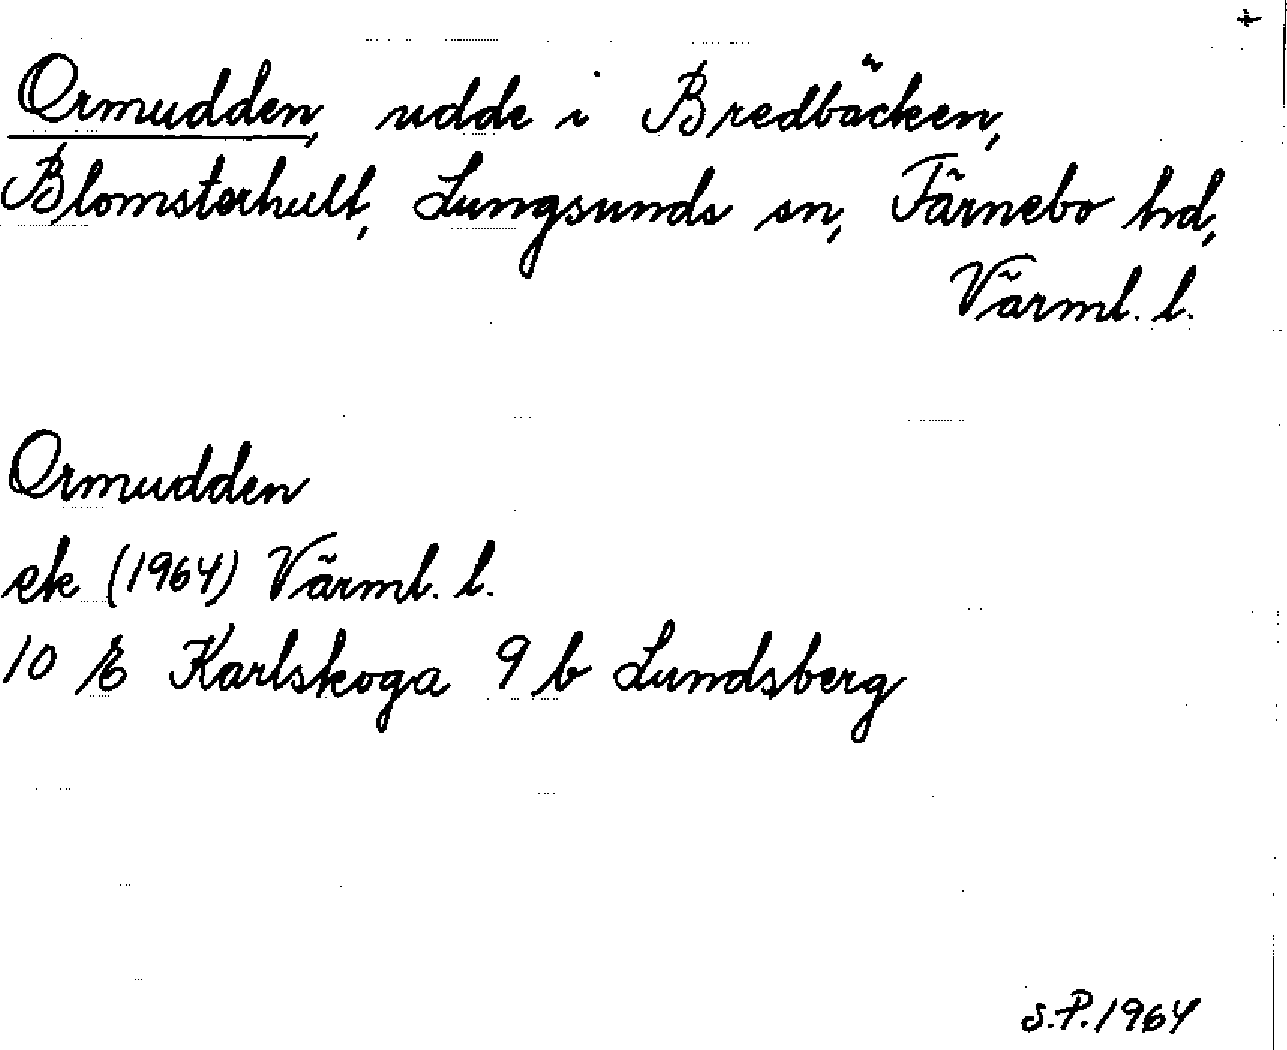 +
Ormudden, udde i Bredbäcken,
Blomsterhult, Lungsunds sn, Färnebo hd,
Värml. l.
Ormudden
ek (1964) Värml. l.
10 E Karlskoga 9 b Lundsberg
S.P. 1964